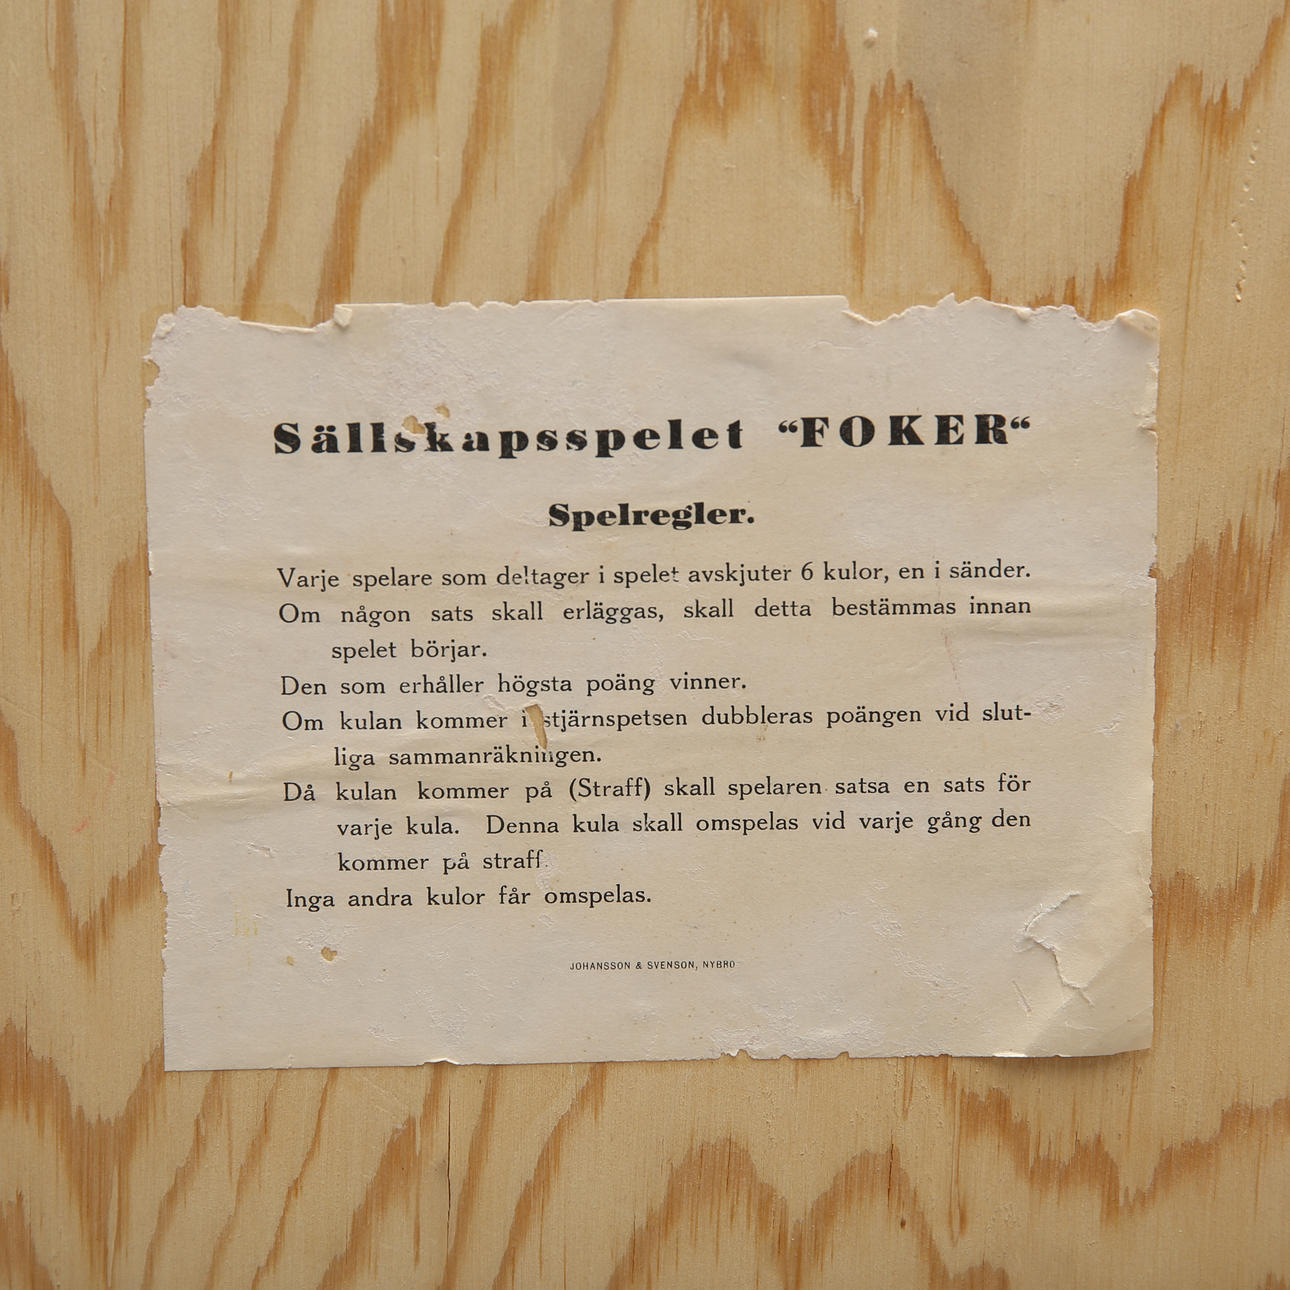 Sällskapsspelet “FOKER“
Spelregler.
Varje spelare som deltager i spelet avskjuter 6 kulor, en i sänder.
Om någon sats skall erläggas, skall detta bestämmas innan
spelet börjar.
Den som erhåller högsta poäng vinner.
Om kulan kommer i stjärnspetsen dubbleras poängen vid slut-
liga sammanräkningen.
Då kulan kommer på (Straff) skall spelaren satsa en sats för
varje kula. Denna kula skall omspelas vid varje gång den
kommer på straff.
Inga andra kulor får omspelas.
JOHANSSON & SVENSON, NYBRO